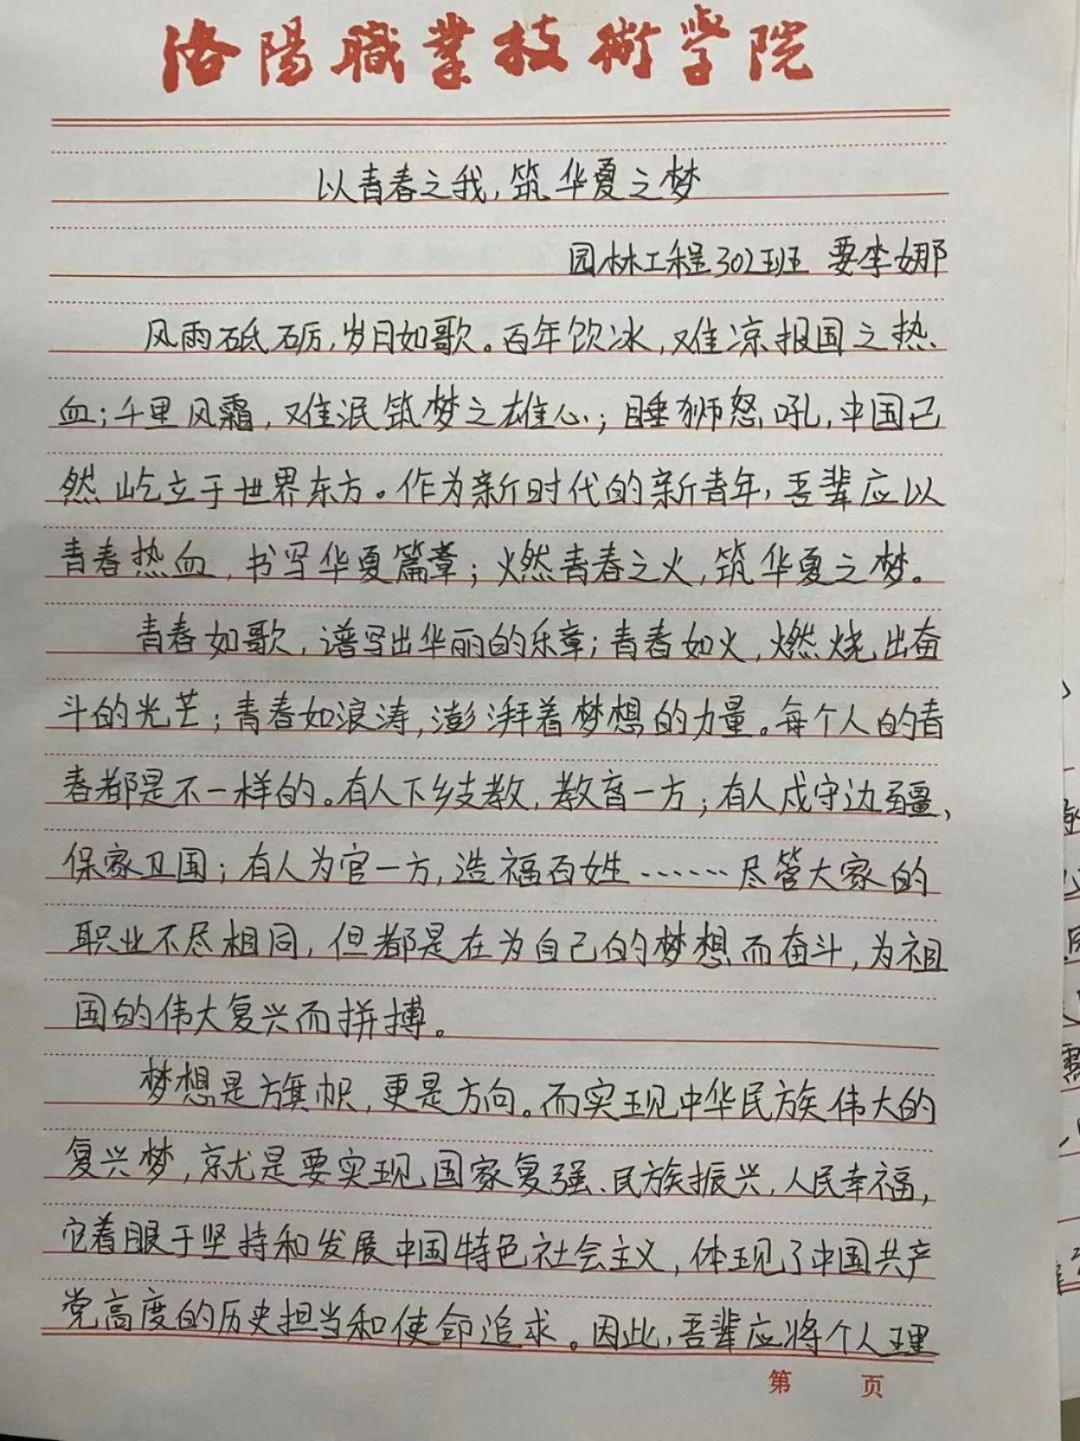 洛陽職業技術學院
以青春之我，筑华夏之梦
园林工程302班 要李娜
风雨砥砺，岁月如歌。百年饮冰，难凉报国之热
血；千里风霜，难泯筑梦之雄心；睡狮怒吼，中国已
然屹立于世界东方。作为新时代的新青年，吾辈应以
青春热血，书写华夏篇章；燃青春之火，筑华夏之梦。
青春如歌，谱写出华丽的乐章；青春如火，燃烧出奋
斗的光芒；青春如浪涛，澎湃着梦想的力量。每个人的青
春都是不一样的。有人下乡支教，教育一方；有人戍守边疆，
保家卫国；有人为官一方，造福百姓……尽管大家的
职业不尽相同，但都是在为自己的梦想而奋斗，为祖
国的伟大复兴而拼搏。
梦想是旗帜，更是方向。而实现中华民族伟大的
复兴梦，就是要实现国家复强、民族振兴，人民幸福，
它着眼于坚持和发展中国特色社会主义，体现了中国共产
党高度的历史担当和使命追求。因此，吾辈应将个人理
第 页